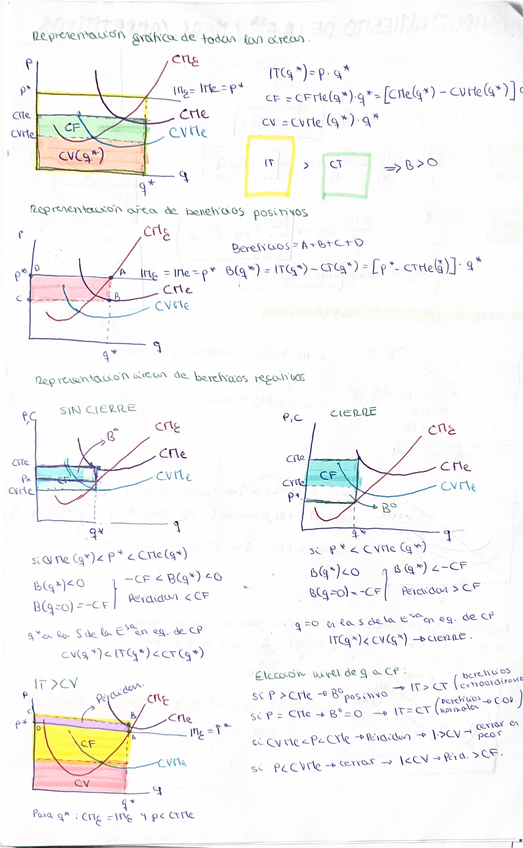 Representación gráfica de todas las áreas.
P
CMg
P*
IMg = IMe = P*
CMe
CVMe
CF
CV(q*)
CMe
CVMe
q*
q
IT(q*) = P · q*
CF = CFMe(q*) · q* = [CMe(q*) - CVMe(q*)]
CV = CVMe(q*) · q*
IT > CT => B > 0
Representación área de beneficios positivos
P
CMg
P*
D
A
IMg = IMe = P*
C
B
CMe
CVMe
q*
q
Beneficios = A+B+C+D
B(q*) = IT(q*) - CT(q*) = [P* - CTMe(q*)] · q*
Representación áreas de beneficios negativos
SIN CIERRE
P,C
Bº
CMg
CMe
P*
CVMe
CF
CMe
CVMe
q*
q
si CVMe(q*) < P* < CMe(q*)
B(q*) < 0
B(q=0) = -CF
-CF < B(q*) < 0
Pérdidas < CF
q* es la S de la Esa en eq. de CP
CV(q*) < IT(q*) < CT(q*)
CIERRE
P,C
CMg
CMe
CF
CVMe
P*
CMe
CVMe
Bº
q*
q
si P* < CVMe(q*)
B(q*) < 0
B(q=0) = -CF
B(q*) < -CF
Pérdidas > CF
q=0 es la S de la Esa en eq. de CP
IT(q*) < CV(q*) → cierre.
IT > CV
P
Pérdidas
CMg
C
B
CMe
P*
D
A
IMg = P*
CF
CVMe
CV
q*
q
Para q*: CMg = IMg y P < CTMe
Elección nivel de q a CP:
si P > CMe → Bº positivo → IT > CT (beneficios extraordinarios
si P = CMe → Bº = 0 → IT = CT (beneficios normales → COP.)
si CVMe < P < CMe → Pérdidas → I > CV → cerrar es peor
si P < CVMe → cerrar → I < CV → Pérd. > CF.